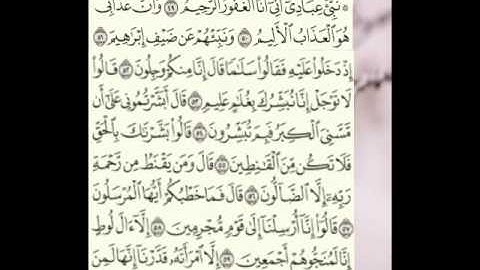 ۞ نَبِّئْ عِبَادِي أَنِّي أَنَا الْغَفُورُ الرَّحِيمُ ٤٩ وَأَنَّ عَذَابِي
هُوَ الْعَذَابُ الْأَلِيمُ ٥٠ وَنَبِّئْهُمْ عَن ضَيْفِ إِبْرَاهِيمَ ٥١
إِذْ دَخَلُوا عَلَيْهِ فَقَالُوا سَلَامًا قَالَ إِنَّا مِنكُمْ وَجِلُونَ ٥٢ قَالُوا
لَا تَوْجَلْ إِنَّا نُبَشِّرُكَ بِغُلَامٍ عَلِيمٍ ٥٣ قَالَ أَبَشَّرْتُمُونِي عَلَىٰ أَن
مَّسَّنِيَ الْكِبَرُ فَبِمَ تُبَشِّرُونَ ٥٤ قَالُوا بَشَّرْنَاكَ بِالْحَقِّ
فَلَا تَكُن مِّنَ الْقَانِطِينَ ٥٥ قَالَ وَمَن يَقْنَطُ مِن رَّحْمَةِ
رَبِّهِ إِلَّا الضَّالُّونَ ٥٦ قَالَ فَمَا خَطْبُكُمْ أَيُّهَا الْمُرْسَلُونَ
٥٧ قَالُوا إِنَّا أُرْسِلْنَا إِلَىٰ قَوْمٍ مُّجْرِمِينَ ٥٨ إِلَّا آلَ لُوطٍ
إِنَّا لَمُنَجُّوهُمْ أَجْمَعِينَ ٥٩ إِلَّا امْرَأَتَهُ قَدَّرْنَا إِنَّهَا لَمِنَ